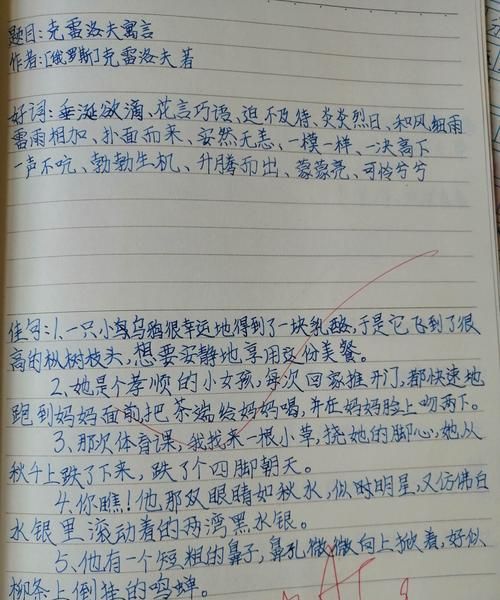 题目:克雷洛夫寓言
作者:[俄罗斯]克雷洛夫 著
好词:垂涎欲滴、花言巧语、迫不及待、炎炎烈日、和风细雨
雷雨相加、扑面而来、安然无恙、一模一样、一决高下
一声不吭、勃勃生机、升腾而出、蒙蒙亮、可怜兮兮
佳句:1.一只小乌鸦很幸运地得到了一块乳酪,于是它飞到了很
高的枞树枝头,想要安静地享用这份美餐。
2、她是个孝顺的小女孩,每次回家推开门,都快速地
跑到妈妈面前,把茶端给妈妈喝,并在妈妈脸上吻两下。
3、那次体育课,我找来一根小草,挠她的脚心,她从
秋千上跌了下来,跌了个四脚朝天。
4.你瞧!他那双眼睛如秋水,似时明星,又仿佛白
水银里滚动着的两湾黑水银。
5、他有一个短粗的鼻子,鼻孔微微向上掀着,好似
柳条上倒挂的鸣蝉。